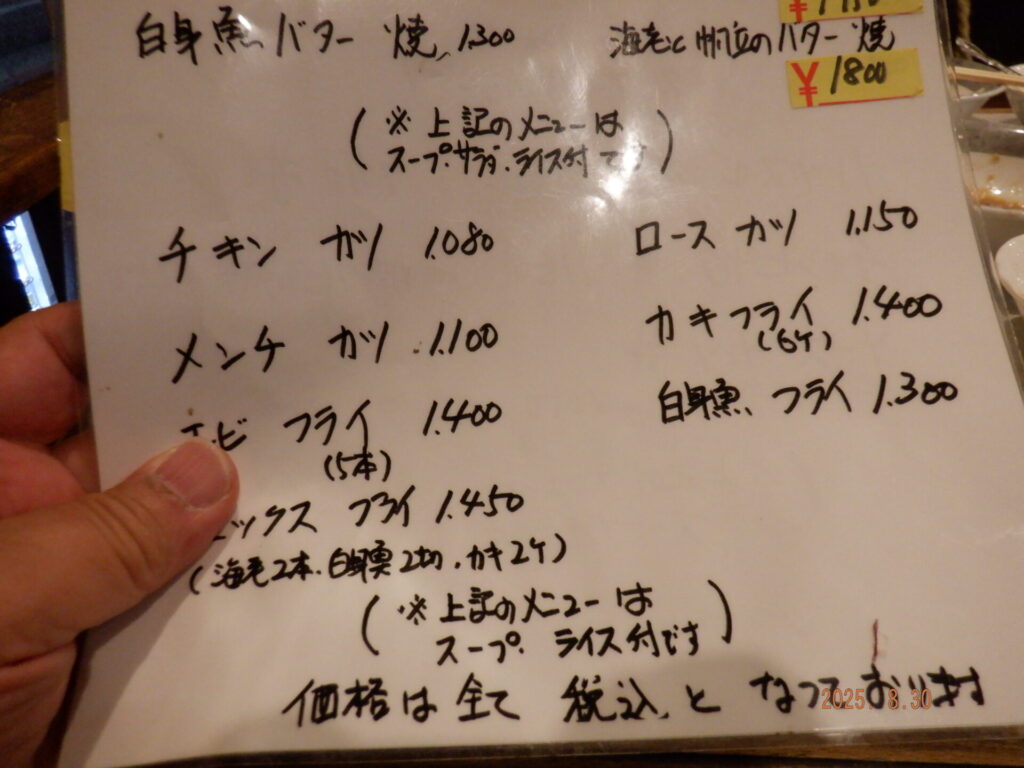 白身魚バター焼 1.300
海老と帆立のバター焼
¥1800
(※上記のメニューは
スープ.サラダ.ライス付です)
チキン カツ 1.080
ロース カツ 1.150
メンチ カツ 1.100
カキフライ 1.400
(6ケ)
エビ フライ 1.400
(5本)
白身魚 フライ 1.300
ックス フライ 1.450
(海老2本.白身魚2切.カキ2ケ)
(※上記のメニューは
スープ. ライス付です)
価格は全て 税込 と なっております
2025. 8.30